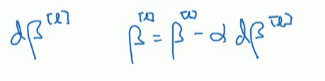 dβ^[l]    β^[l] = β^[l] - α dβ^[l]